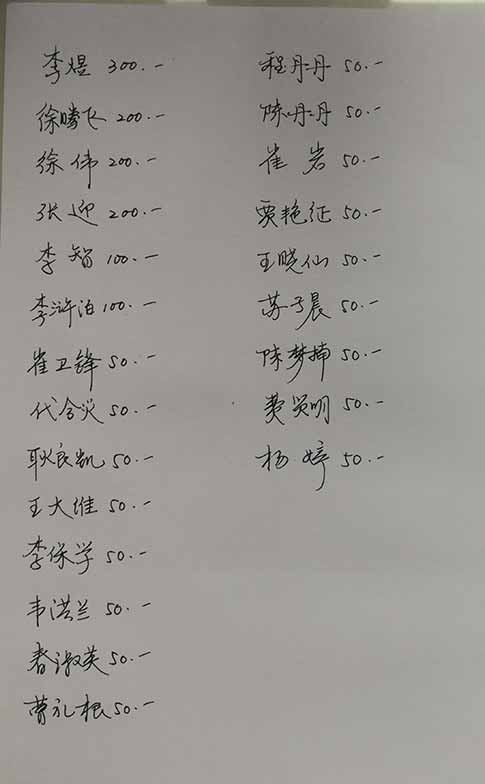 李煜 300.—
徐腾飞 200.—
徐伟 200.—
张迎 200.—
李智 100.—
李浒泊 100.—
崔卫锋 50.—
代令炎 50.—
耿良凯 50.—
王大维 50.—
李保学 50.—
韦洪兰 50.—
春淑英 50.—
曹礼根 50.—
程丹丹 50.—
陈丹丹 50.—
崔岩 50.—
贾艳征 50.—
王晓仙 50.—
苏子晨 50.—
陈梦楠 50.—
费贤明 50.—
杨婷 50.—